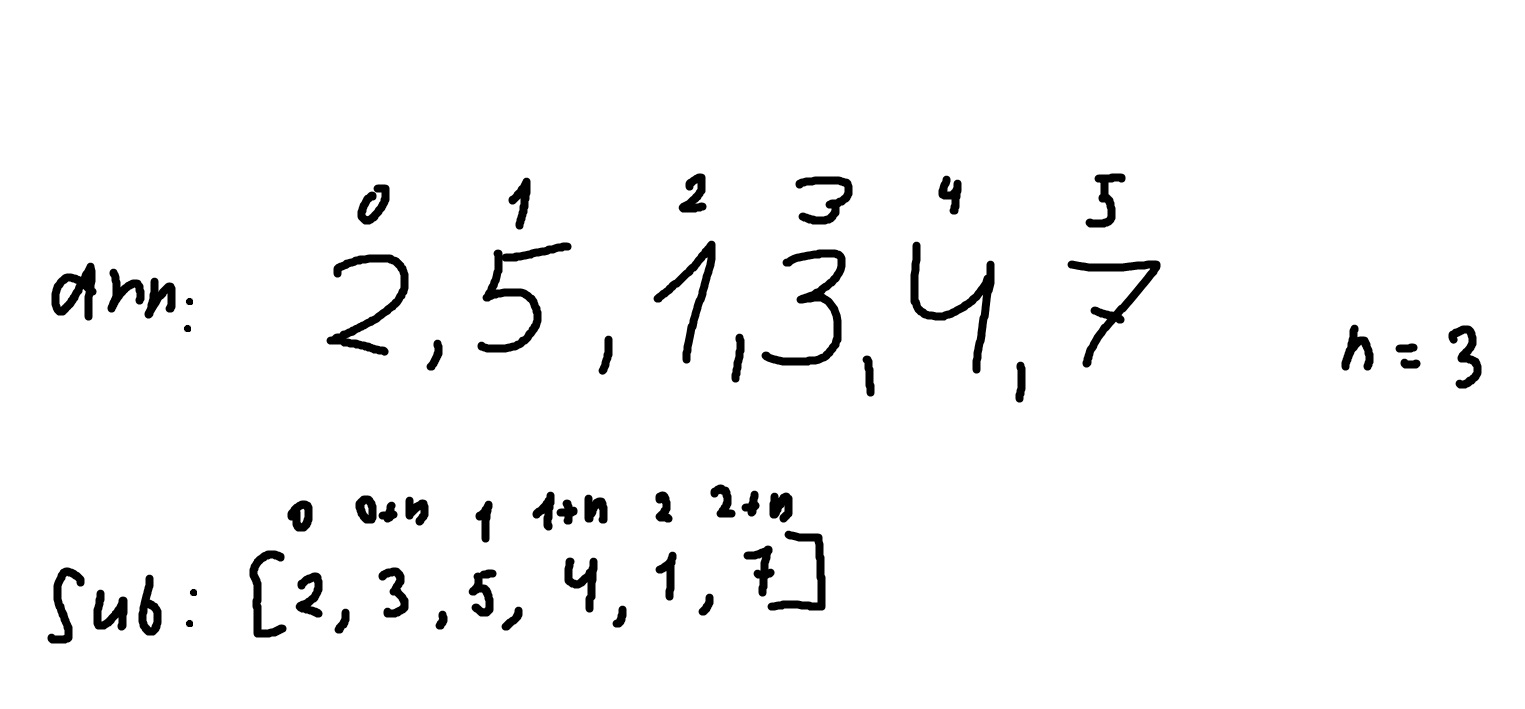 0 1 2 3 4 5
arr: 2, 5, 1, 3, 4, 7
n = 3
0 0+n 1 1+n 2 2+n
Sub: [2, 3, 5, 4, 1, 7]